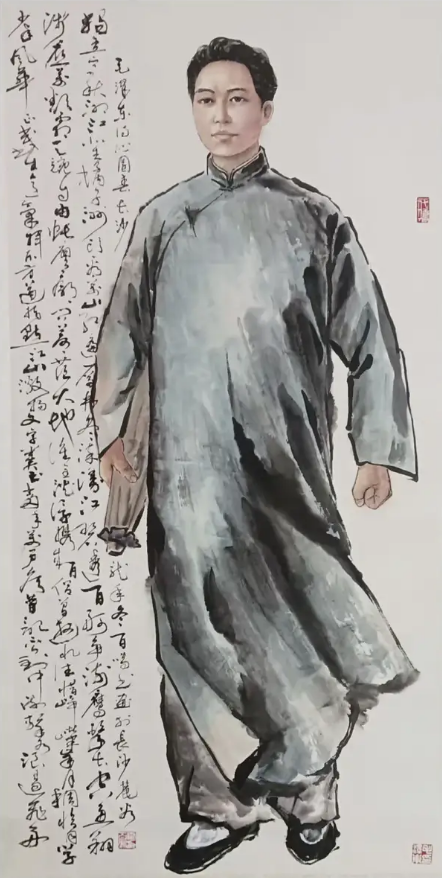 毛泽东词沁园春长沙
独立寒秋湘江北去橘子洲头看万山红遍层林尽染漫江碧透百舸争流鹰击长空鱼翔
浅底万类霜天竞自由怅寥廓问苍茫大地谁主沉浮携来百侣曾游忆往昔峥嵘岁月稠恰同学
少年风华正茂书生意气挥斥方遒指点江山激扬文字粪土当年万户侯曾记否到中流击水浪遏飞舟
龙年冬 于长沙麓谷